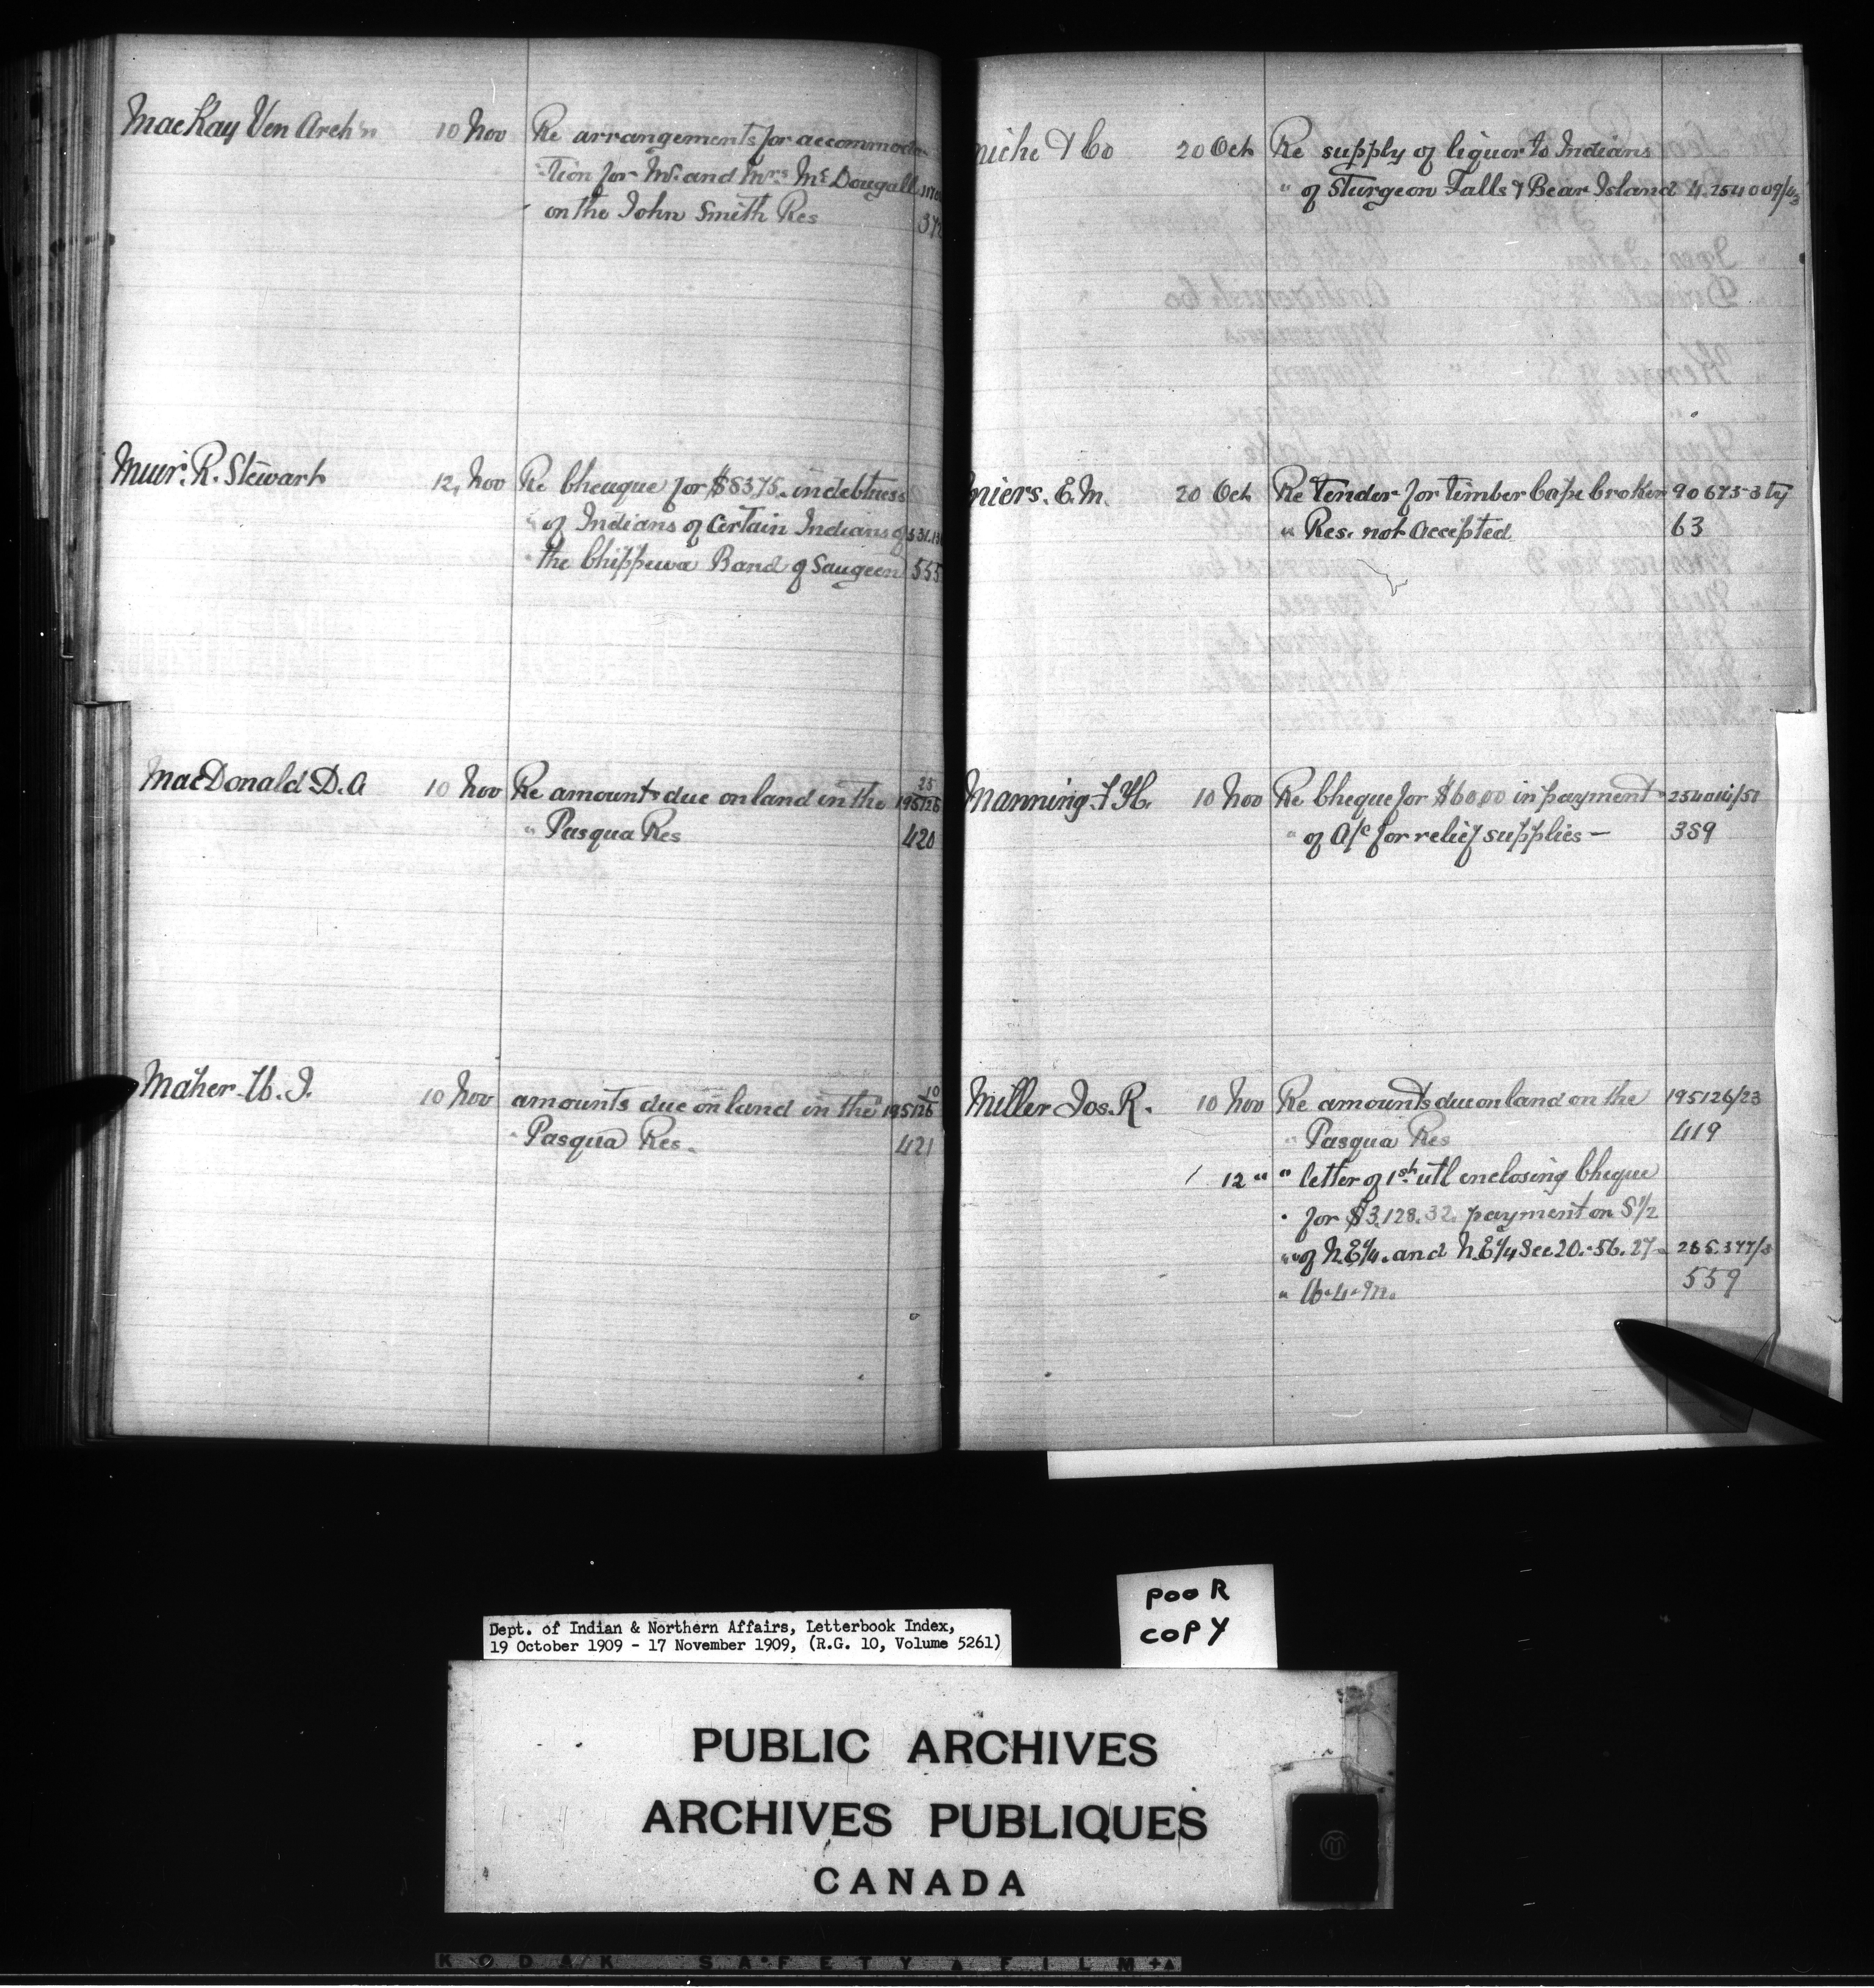 MacKay Ven Arch'n 10 Nov Re arrangements for accommoda-
tion for Mr. and Mrs McDougall
on the John Smith Res
Muir. R. Stewart 12, Nov Re Cheuque for $83,75. indebtness
" of Indians of Certain Indians of
" the Chippewa Band of Saugeen 555
MacDonald D. A 10 Nov Re amounts due on land in the 195126 25
" Pasqua Res 420
Maher 10 Nov amounts due on land in the 195126 10
" Pasqua Res. 421
& Co 20 Oct Re supply of liquor to Indians
" of Sturgeon Falls & Bear Island
E. M. 20 Oct Re Tender for Timber Cape Croker
" Res. not accepted 63
Manning 10 Nov Re Cheque for $60.00 in payment 254014/51
" of A/c for relief supplies — 359
Miller Jos. R. 10 Nov Re amounts due on land on the 195126/23
" Pasqua Res 419
12 " " letter of 1st utl enclosing Cheque
" for $3,128.32. payment on S 1/2
" of N.E 1/4. and N.E 1/4 Sec 20.-56.27-
" W.4.M. 559
Dept. of Indian & Northern Affairs, Letterbook Index,
19 October 1909 - 17 November 1909, (R.G. 10, Volume 5261)
POOR
COPY
PUBLIC ARCHIVES
ARCHIVES PUBLIQUES
CANADA
KODAK SAFETY FILM